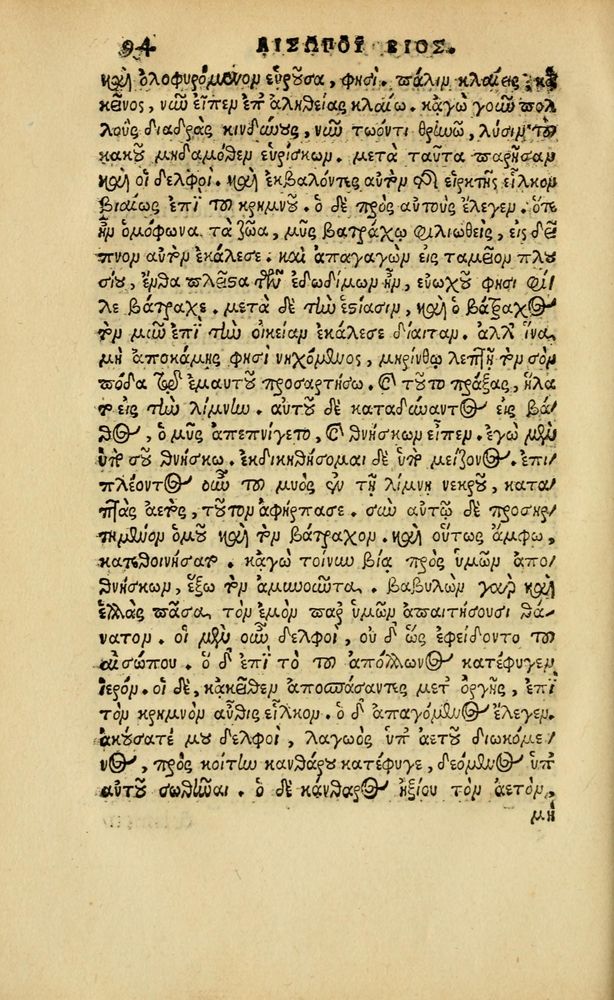 94 ΑΙΣΩΠΟΥ ΒΙΟΣ.
καὶ ὀλοφυρόμενον εὑροῦσα, φησὶ. πάλιν κλαίεις; κα
κεῖνος, νῦν εἶπεν ἐπ ἀληθείας κλαίω. κᾀγὼ γοῦν πολ
λοὺς διαδρὰς κινδύνους, νῦν τουτονὶ θρηνῶ, λύσιν τοῦ
κακοῦ μηδαμόθεν εὑρίσκων. μετὰ ταῦτα παρῆσαν
καὶ οἱ δελφοὶ. καὶ ἐκβαλόντες αὐτὸν τῆς εἱρκτῆς εἷλκον
βιαίως ἐπὶ τοῦ κρημνοῦ. ὁ δὲ πρὸς αὐτοὺς ἔλεγεν. ὅτε
ἦν ὁμόφωνα τὰ ζῶα, μῦς βατράχῳ φιλιωθεὶς, εἰς δεῖ
πνον αὐτὸν ἐκάλεσε. καὶ ἀπαγαγὼν εἰς ταμεῖον πλου
σίου, ἔνθα πλεῖστα τῶν ἐδωδίμων ἦν, εὐωχοῦ φησι φί/
λε βάτραχε. μετὰ δὲ τὴν ἑστίασιν, καὶ ὁ βάτραχος
τὸν μῦν ἐπὶ τὴν οἰκείαν ἐκάλεσε δίαιταν. ἀλλ ἵνα
μὴ ἀποκάμῃς φησὶ νηχόμενος, μηρίνθῳ λεπτῇ τὸν σὸν
πόδα τῷ ἐμαυτοῦ προσαρτήσω. καὶ τοῦτο πράξας, ἥλα
το εἰς τὴν λίμνην. αὐτοῦ δὲ καταδύναντος εἰς βά/
θος, ὁ μῦς ἀπεπνίγετο, καὶ θνήσκων εἶπεν. ἐγὼ μὲν
ὑπὸ σοῦ θνήσκω. ἐκδικηθήσομαι δὲ ὑπὸ μείζονος. ἐπι/
πλέοντος οὖν τοῦ μυὸς ἐν τῇ λίμνῃ νεκροῦ, κατα/
πτὰς ἀετὸς, τοῦτον ἀφήρπασε. σὺν αὐτῷ δὲ προσηρ/
τημένον ὁμοῦ καὶ τὸν βάτραχον. καὶ οὕτως ἄμφω,
κατεθοινήσατο. κᾀγὼ τοίνυν βίᾳ πρὸς ὑμῶν ἀπο/
θνήσκων, ἕξω τὸν ἀμυνοῦντα. βαβυλὼν γὰρ καὶ
ἑλλὰς πᾶσα, τὸν ἐμὸν παρ ὑμῶν ἀπαιτήσουσι θά/
νατον. οἱ μὲν οὖν δελφοὶ, οὐ δ ὣς ἐφείδοντο τοῦ
αἰσώπου. ὅ δ ἐπὶ τὸ τοῦ ἀπόλλωνος κατέφυγεν
ἱερόν. οἱ δὲ, κᾀκεῖθεν ἀποσπάσαντες μετ ὀργῆς, ἐπὶ
τὸν κρημνὸν αὖθις εἷλκον. ὁ δ ἀπαγόμενος ἔλεγεν.
ἀκούσατέ μου δελφοὶ, λαγωὸς ὑπ ἀετοῦ διωκόμε/
νος, πρὸς κοίτην κανθάρου κατέφυγε, δεόμενος ὑπ
αὐτοῦ σωθῆναι. ὁ δὲ κάνθαρος ἠξίου τὸν ἀετὸν,
μὴ